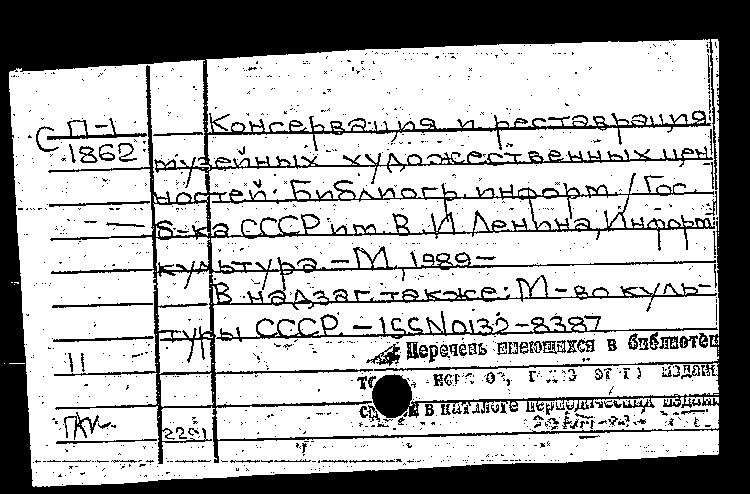 С П-1
1862
Консервация и реставрация
музейных художественных цен
ностей: Библиогр. информ. / Гос.
б-ка СССР им. В. И. Ленина, Информ
культура. – М., 1989 –
В надзаг. также: М-во куль-
туры СССР. – ISSN 0132-8387
Перечень имеющихся в библиотеке
изданий
в каталоге периодических изданий
11
2291